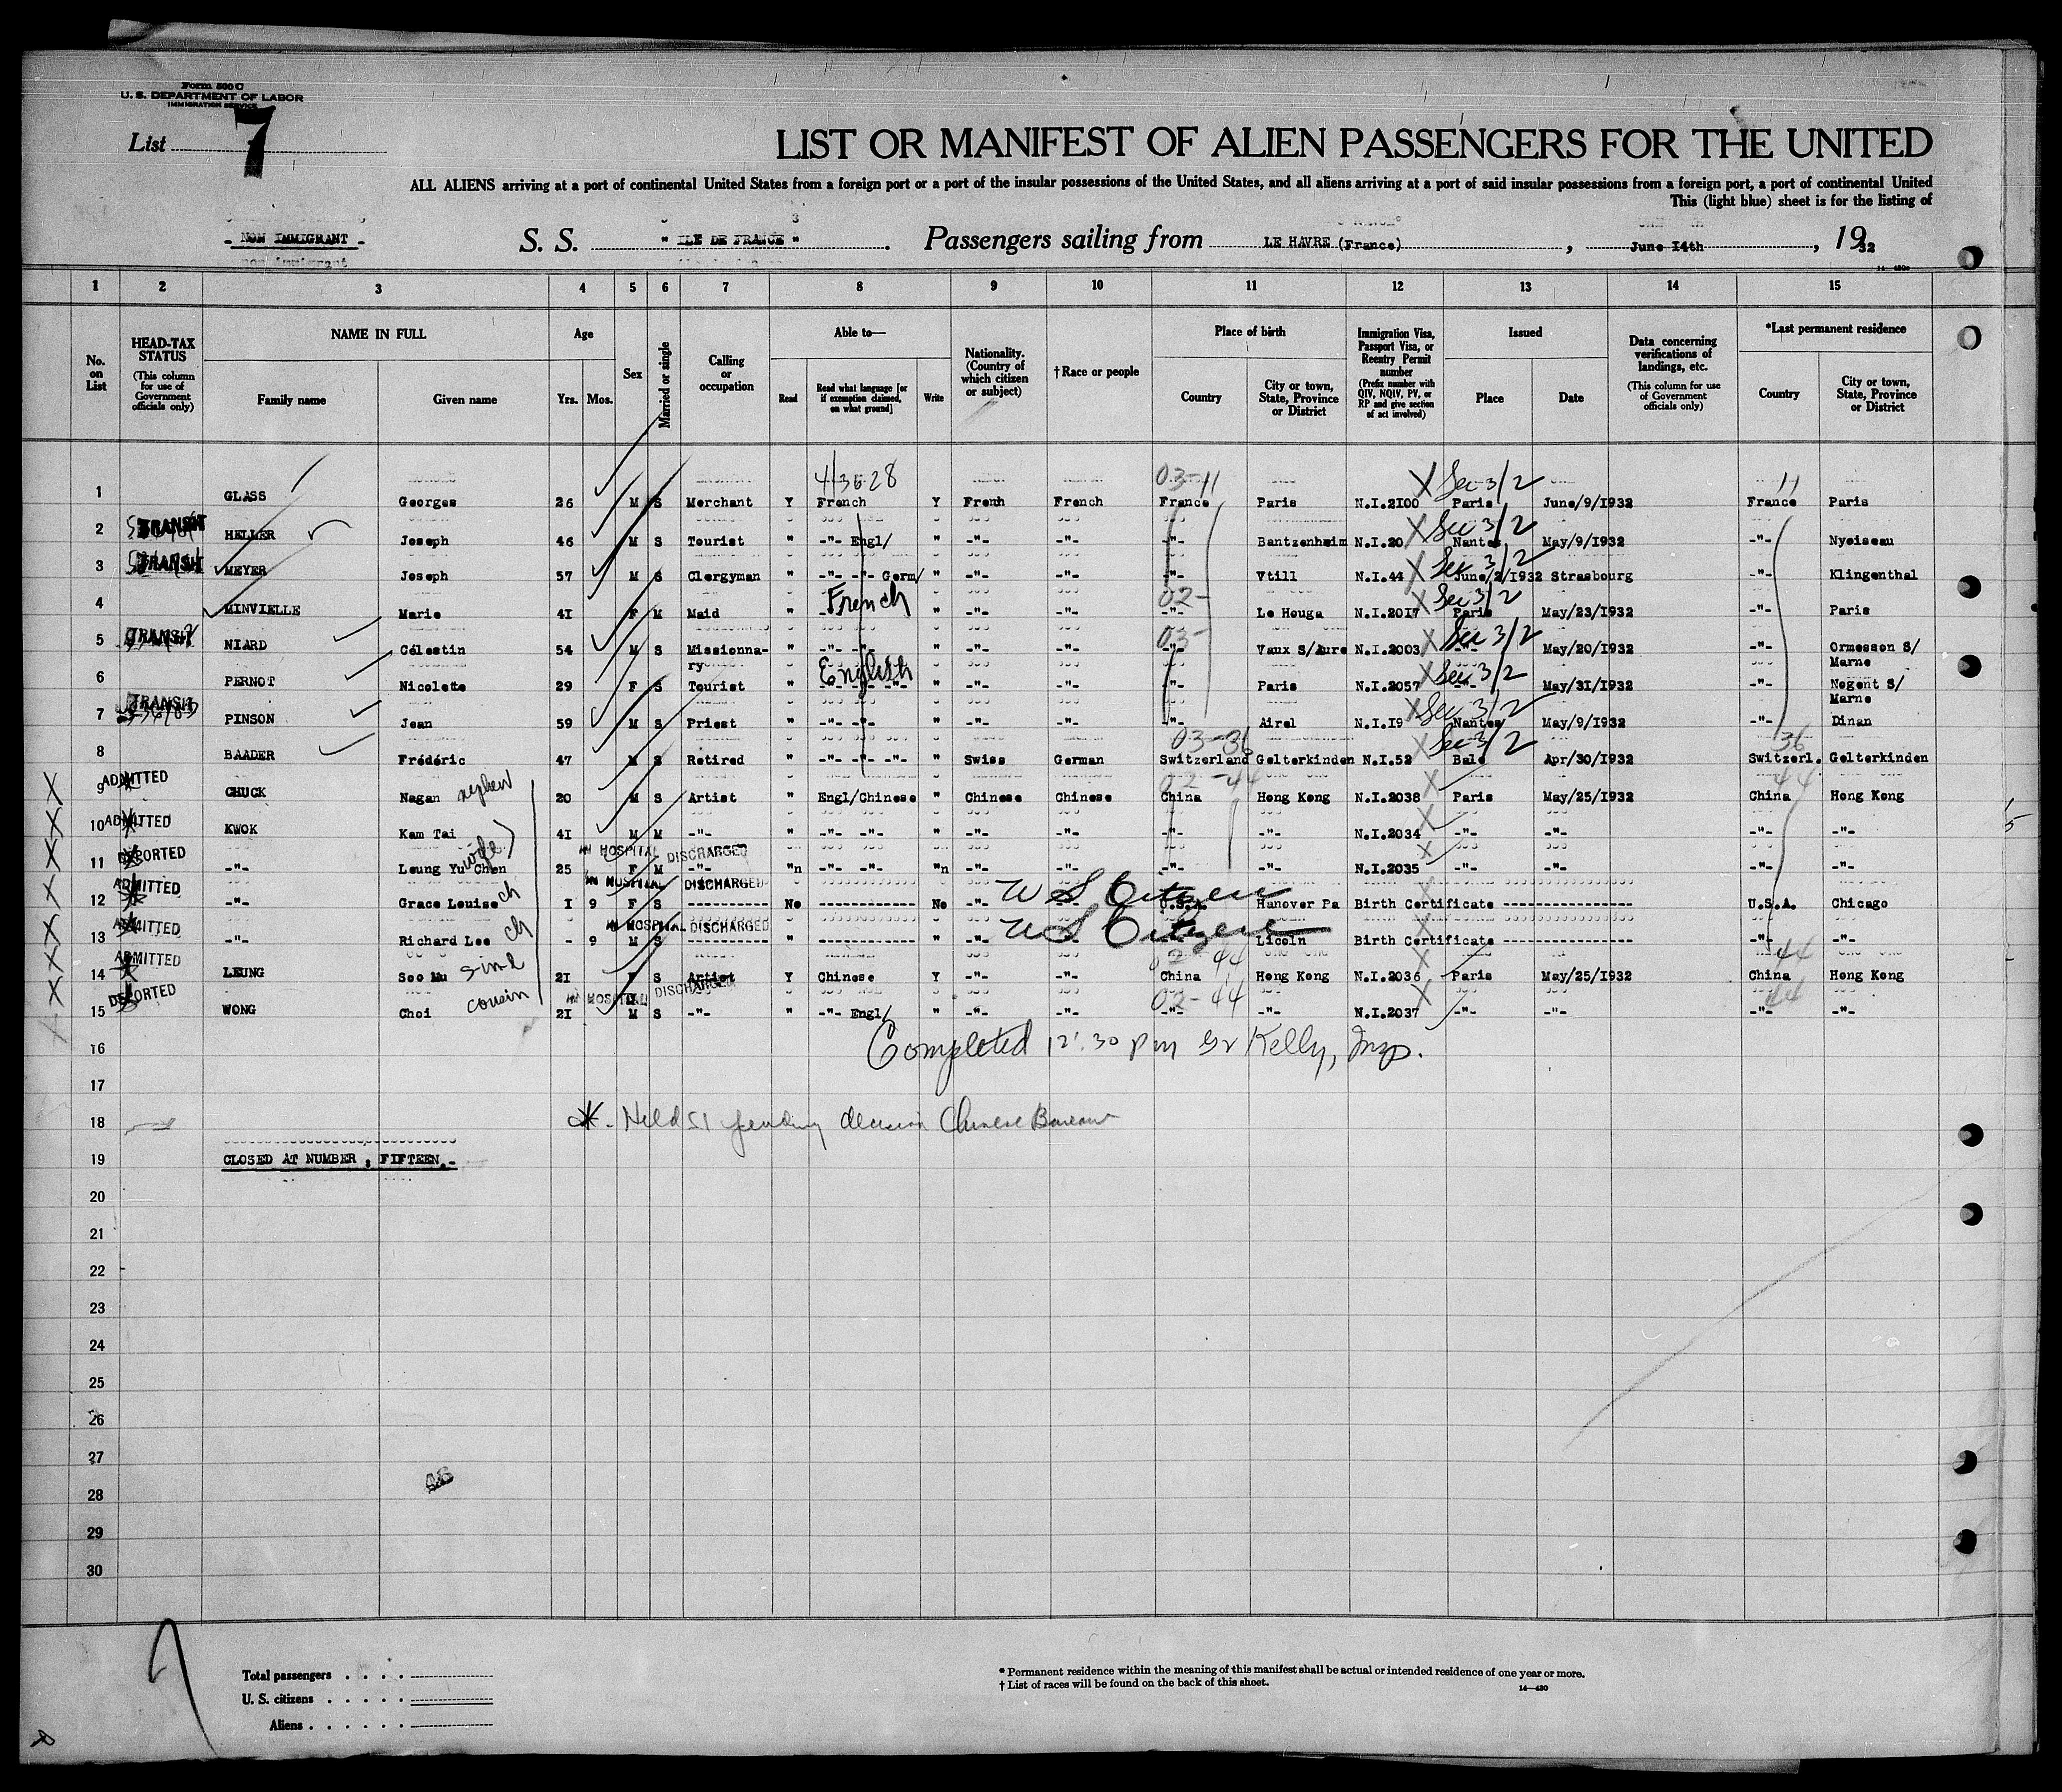 Form 500 C
U. S. DEPARTMENT OF LABOR
IMMIGRATION SERVICE
List 7
LIST OR MANIFEST OF ALIEN PASSENGERS FOR THE UNITED
ALL ALIENS arriving at a port of continental United States from a foreign port or a port of the insular possessions of the United States, and all aliens arriving at a port of said insular possessions from a foreign port, a port of continental United
This (light blue) sheet is for the listing of
NON IMMIGRANT S. S. " ILE DE FRANCE " . Passengers sailing from LE HAVRE (France) , June 14th , 1932
1 2 3 4 5 6 7 8 9 10 11 12 13 14 15
No. on List
HEAD-TAX STATUS (This column for use of Government officials only)
NAME IN FULL Family name Given name
Age Yrs. Mos.
Sex
Married or single
Calling or occupation
Able to— Read Read what language [or if exemption claimed, on what ground] Write
Nationality. (Country of which citizen or subject)
†Race or people
Place of birth Country City or town, State, Province or District
Immigration Visa, Passport Visa, or Reentry Permit number (Prefix number with QIV, NQIV, PV, or RP and give section of act involved)
Issued Place Date
Data concerning verifications of landings, etc. (This column for use of Government officials only)
*Last permanent residence Country City or town, State, Province or District
03-11 X Sec 3/2 11
1 GLASS Georges 26 M S Merchant Y French Y Frenh French France Paris N.I.2100 Paris June/9/1932 France Paris
2 TRANSIT HELLER Joseph 46 M S Tourist " -"- Engl/ " -"- -"- -"- Bantzenheim N.I.20 X Sec 3/2 Nantes May/9/1932 -"- Nyoiseau
3 TRANSIT MEYER Joseph 57 M S Clergyman " -"- -"- Germ/ " -"- -"- -"- Vtill N.I.44 X Sec 3/2 June/2/1932 Strasbourg -"- Klingenthal
4 MINVIELLE Marie 41 F M Maid " French " -"- -"- 02- -"- Le Houga N.I.2017 X Sec 3/2 Paris May/23/1932 -"- Paris
5 TRANSIT NIARD Célestin 54 M S Missionna-ry " -"- -"- " -"- -"- 03- -"- Vaux S/Aure N.I.2003 X Sec 3/2 -"- May/20/1932 -"- Ormesson S/ Marne
6 PERNOT Nicolette 29 F S Tourist " English " -"- -"- -"- Paris N.I.2057 X Sec 3/2 -"- May/31/1932 -"- Nogent S/ Marne
7 TRANSIT PINSON Jean 59 M S Priest " -"- -"- " -"- -"- -"- Airel N.I.19 X Sec 3/2 Nantes May/9/1932 -"- Dinan
8 BAADER Frédéric 47 M S Retired " -"- -"- -"- " Swiss German 03-36 Switzerland Gelterkinden N.I.52 X Sec 3/2 Bale Apr/30/1932 36 Switzerl. Gelterkinden
X 9 ADMITTED CHUCK Nagan nephew 20 M S Artist " Engl/Chinese " Chinese Chinese 02-44 China Hong Kong N.I.2038 X Paris May/25/1932 44 China Hong Kong
X 10 ADMITTED KWOK Kam Tai 41 M M -"- " -"- -"- " -"- -"- -"- -"- N.I.2034 X -"- -"- -"- -"-
IN HOSPITAL DISCHARGED
X 11 DEPORTED -"- Leung Yu Chen wife 25 F M -"- "n -"- -"- "n -"- -"- -"- -"- N.I.2035 X -"- -"- -"- -"-
IN HOSPITAL DISCHARGED
X 12 ADMITTED -"- Grace Louise ch 1 9 F S No No -"- U S Citizen U.S.A. Hanover Pa Birth Certificate U.S.A. Chicago
IN HOSPITAL DISCHARGED
X 13 ADMITTED -"- Richard Lee ch - 9 M S " " -"- U S Citizen Licoln Birth Certificate -"- -"-
X 14 ADMITTED LEUNG Soo Mu 21 F S Artist Y Chinese Y -"- -"- 02-44 China Hong Kong N.I.2036 X Paris May/25/1932 44 China Hong Kong
IN HOSPITAL DISCHARGED
X 15 DEPORTED WONG Choi cousin 21 M S -"- " -"- Engl/ " -"- -"- 02-44 -"- -"- N.I.2037 X -"- -"- 44 -"- -"-
16 Completed 12:30 pm Kelly, Insp.
17
18 Held SI pending decision Chinese Bureau
19 CLOSED AT NUMBER , FIFTEEN.-
20
21
22
23
24
25
26
27
28
29
30
Total passengers . . . .
U. S. citizens . . . . .
Aliens . . . . . .
* Permanent residence within the meaning of this manifest shall be actual or intended residence of one year or more.
† List of races will be found on the back of this sheet.
14—430